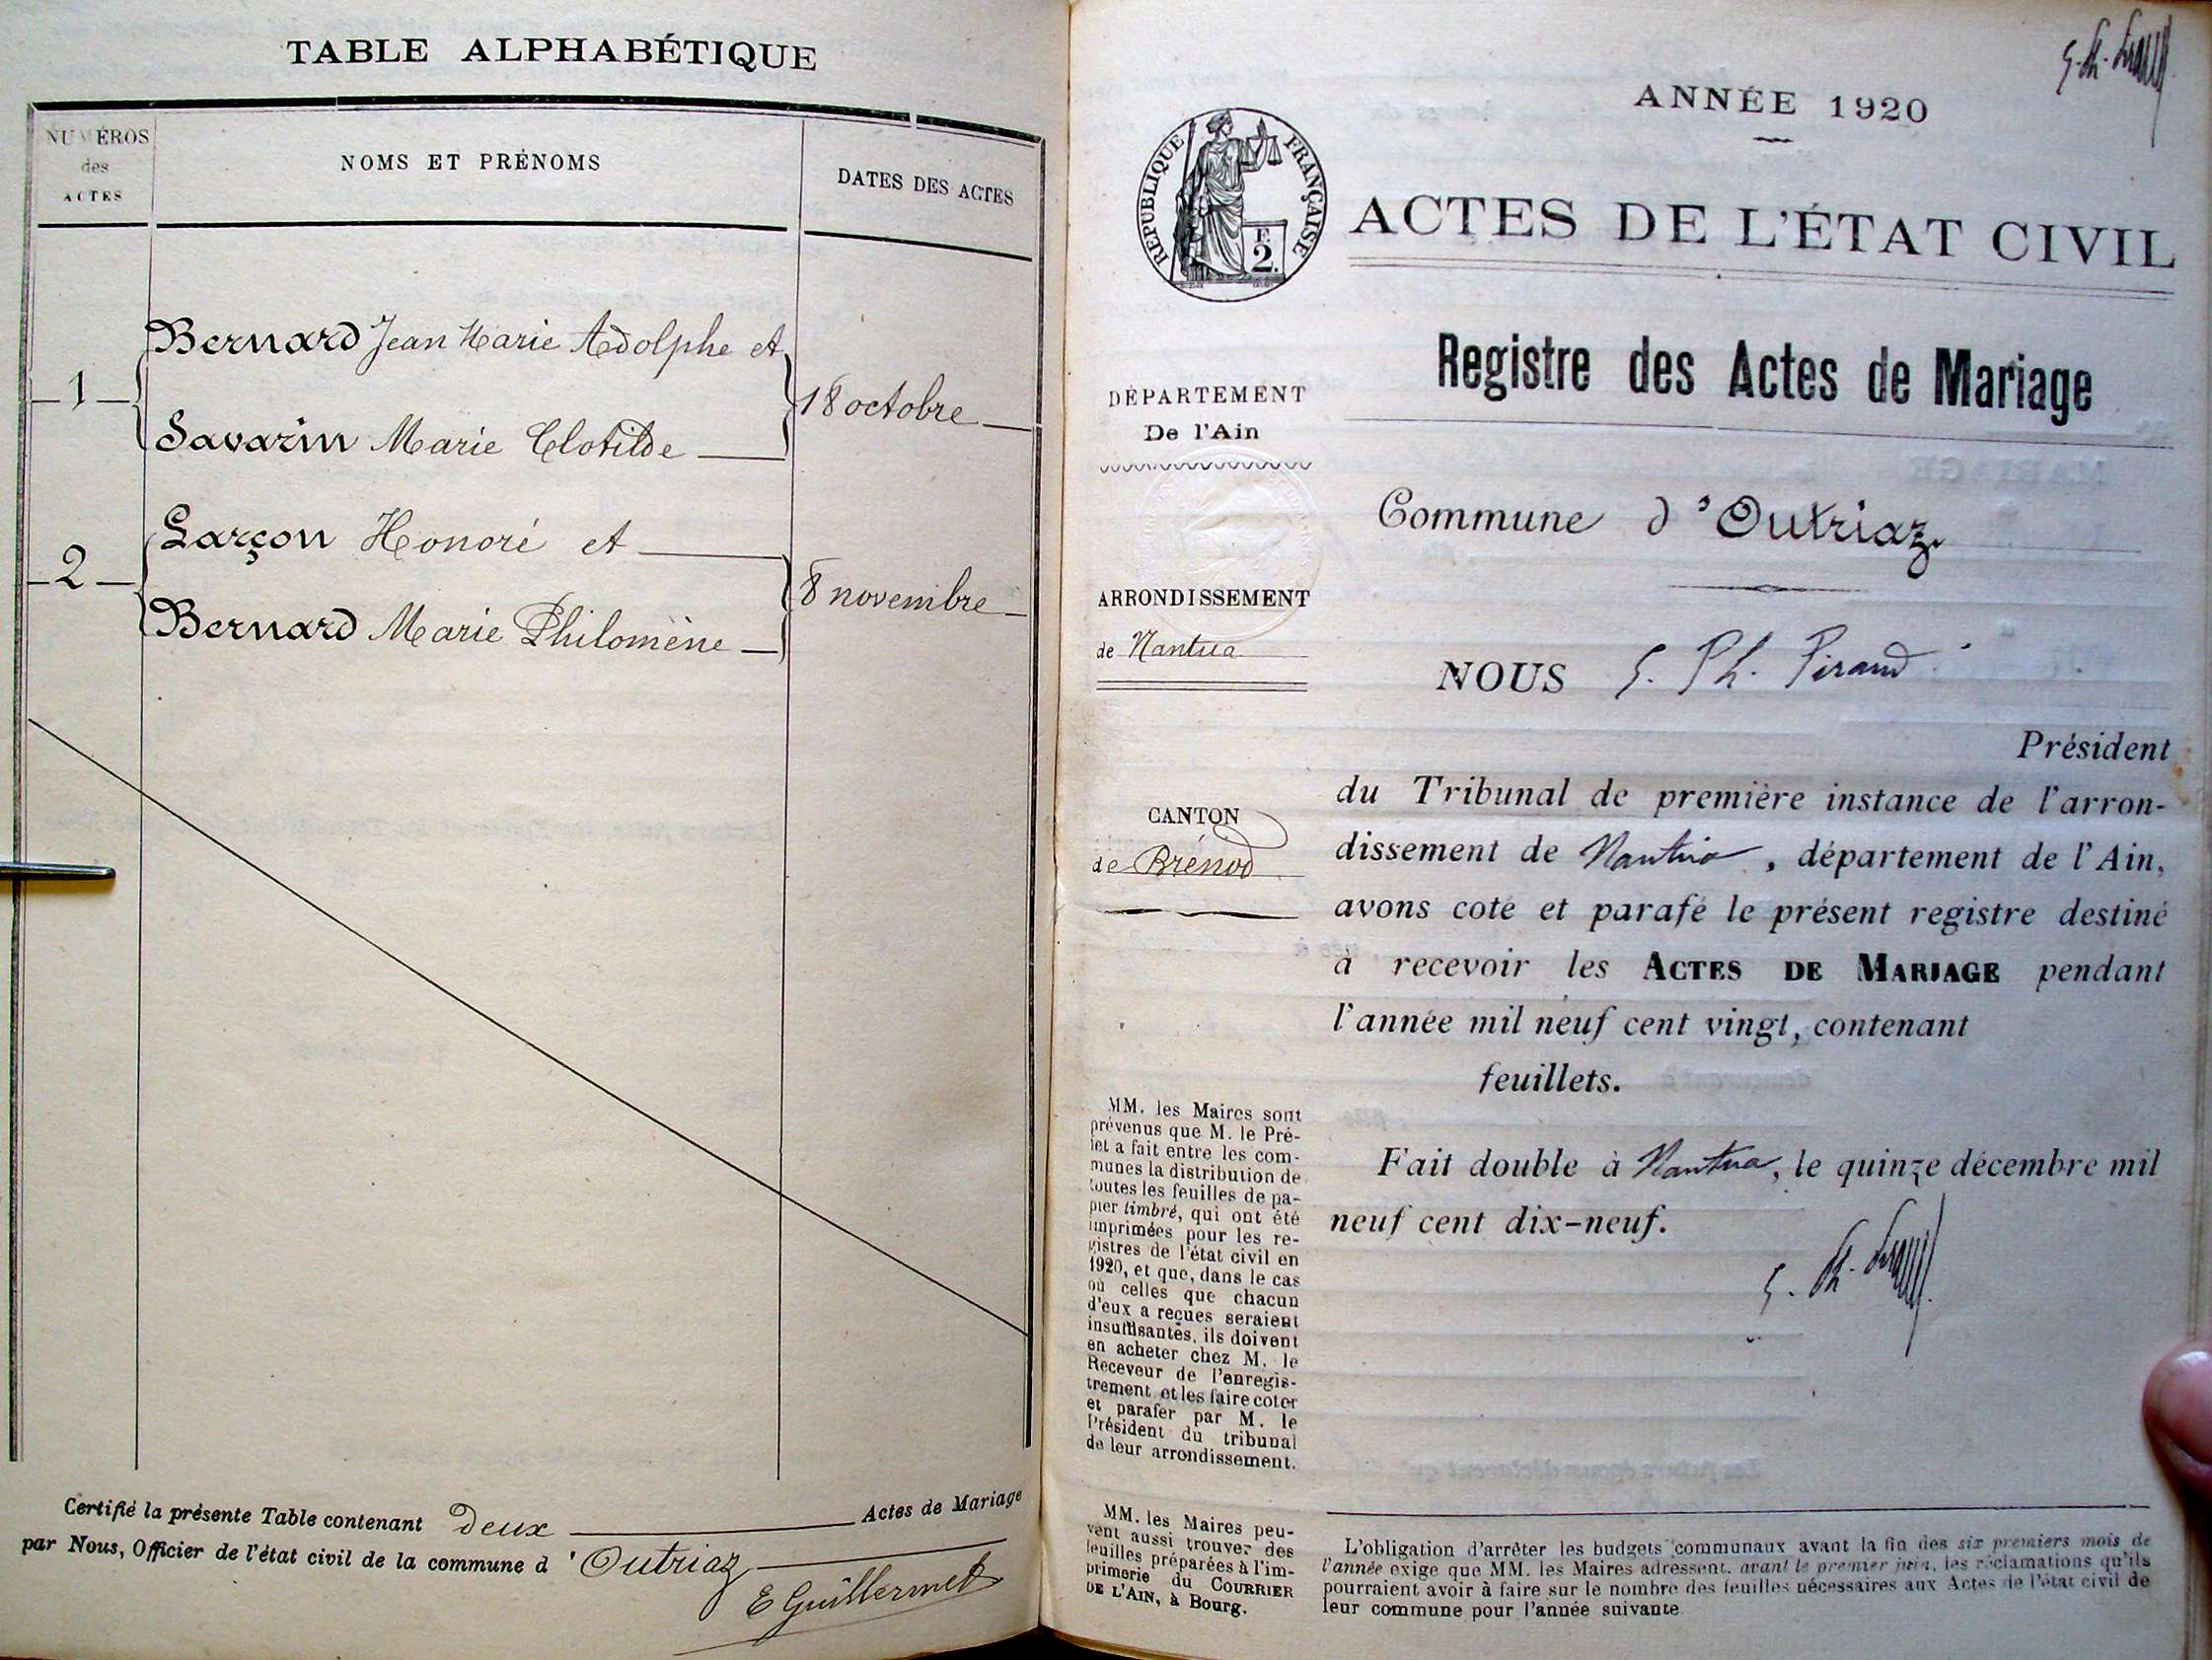 TABLE ALPHABÉTIQUE
NUMÉROS
des
ACTES
NOMS ET PRÉNOMS
DATES DES ACTES
1
Bernard Jean Marie Adolphe et
Savarin Marie Clotilde
18 octobre
2
Larçon Honoré et
Bernard Marie Philomène
8 novembre
Certifié la présente Table contenant deux Actes de Mariage
par Nous, Officier de l'état civil de la commune d'Outriaz
E Guillermet
ANNÉE 1920
RÉPUBLIQUE FRANÇAISE
F.
2.
ACTES DE L'ÉTAT CIVIL
Registre des Actes de Mariage
DÉPARTEMENT
De l'Ain
Commune d'Outriaz
ARRONDISSEMENT
de Nantua
NOUS G. Ph. Piraud
Président
du Tribunal de première instance de l'arron-
dissement de Nantua, département de l'Ain,
avons coté et parafé le présent registre destiné
à recevoir les ACTES DE MARIAGE pendant
l'année mil neuf cent vingt, contenant
feuillets.
CANTON
de Brénod
Fait double à Nantua, le quinze décembre mil
neuf cent dix-neuf.
MM. les Maires sont
prévenus que M. le Pré-
fet a fait entre les com-
munes la distribution de
toutes les feuilles de pa-
pier timbré, qui ont été
imprimées pour les re-
gistres de l'état civil en
1920, et que, dans le cas
où celles que chacun
d'eux a reçues seraient
insuffisantes, ils doivent
en acheter chez M. le
Receveur de l'enregis-
trement et les faire coter
et parafer par M. le
Président du tribunal
de leur arrondissement.
MM. les Maires peu-
vent aussi trouver des
feuilles préparées à l'im-
primerie du COURRIER
DE L'AIN, à Bourg.
L'obligation d'arrêter les budgets communaux avant la fin des six premiers mois de
l'année exige que MM. les Maires adressent, avant le premier juin, les réclamations qu'ils
pourraient avoir à faire sur le nombre des feuilles nécessaires aux Actes de l'état civil de
leur commune pour l'année suivante